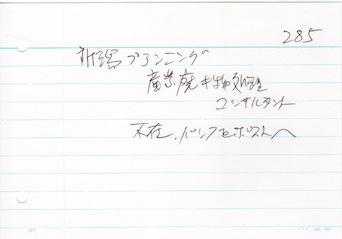 285
プランニング
産業廃棄物処理
コンサルタント
不在、パンフをポストへ